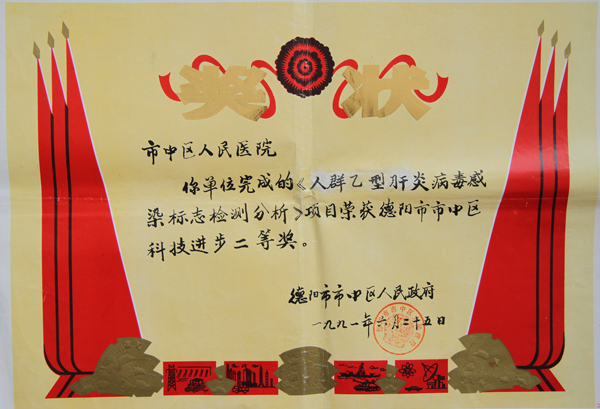 奖状
市中区人民医院
你单位完成的《人群乙型肝炎病毒感
染标志检测分析》项目荣获德阳市市中区
科技进步二等奖。
德阳市市中区人民政府
一九九一年六月二十五日